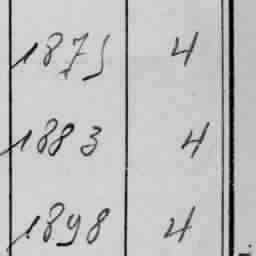 1875 4
1883 4
1898 4